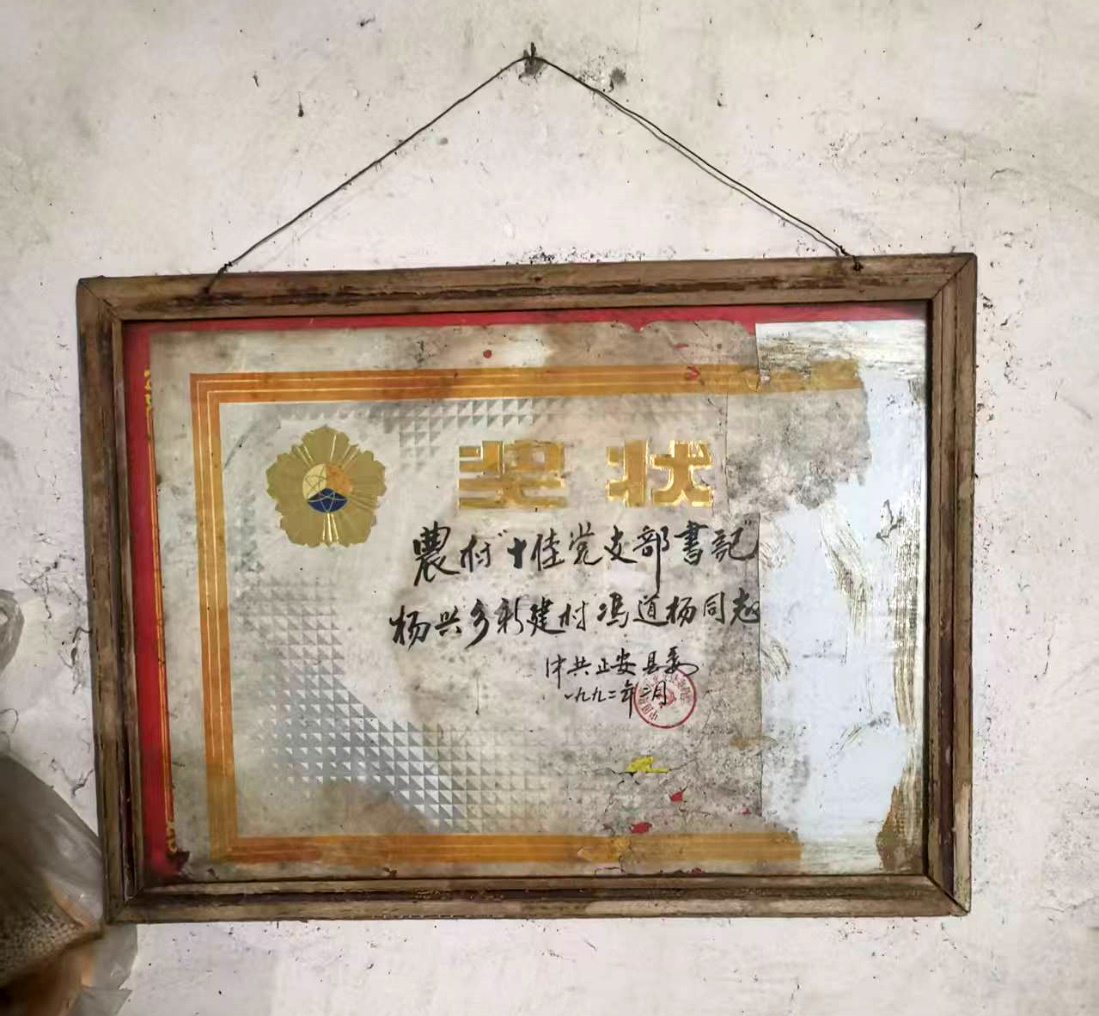 奖状
農村"十佳党支部書記"
杨兴乡新建村冯道杨同志
中共正安县委
一九九二年二月